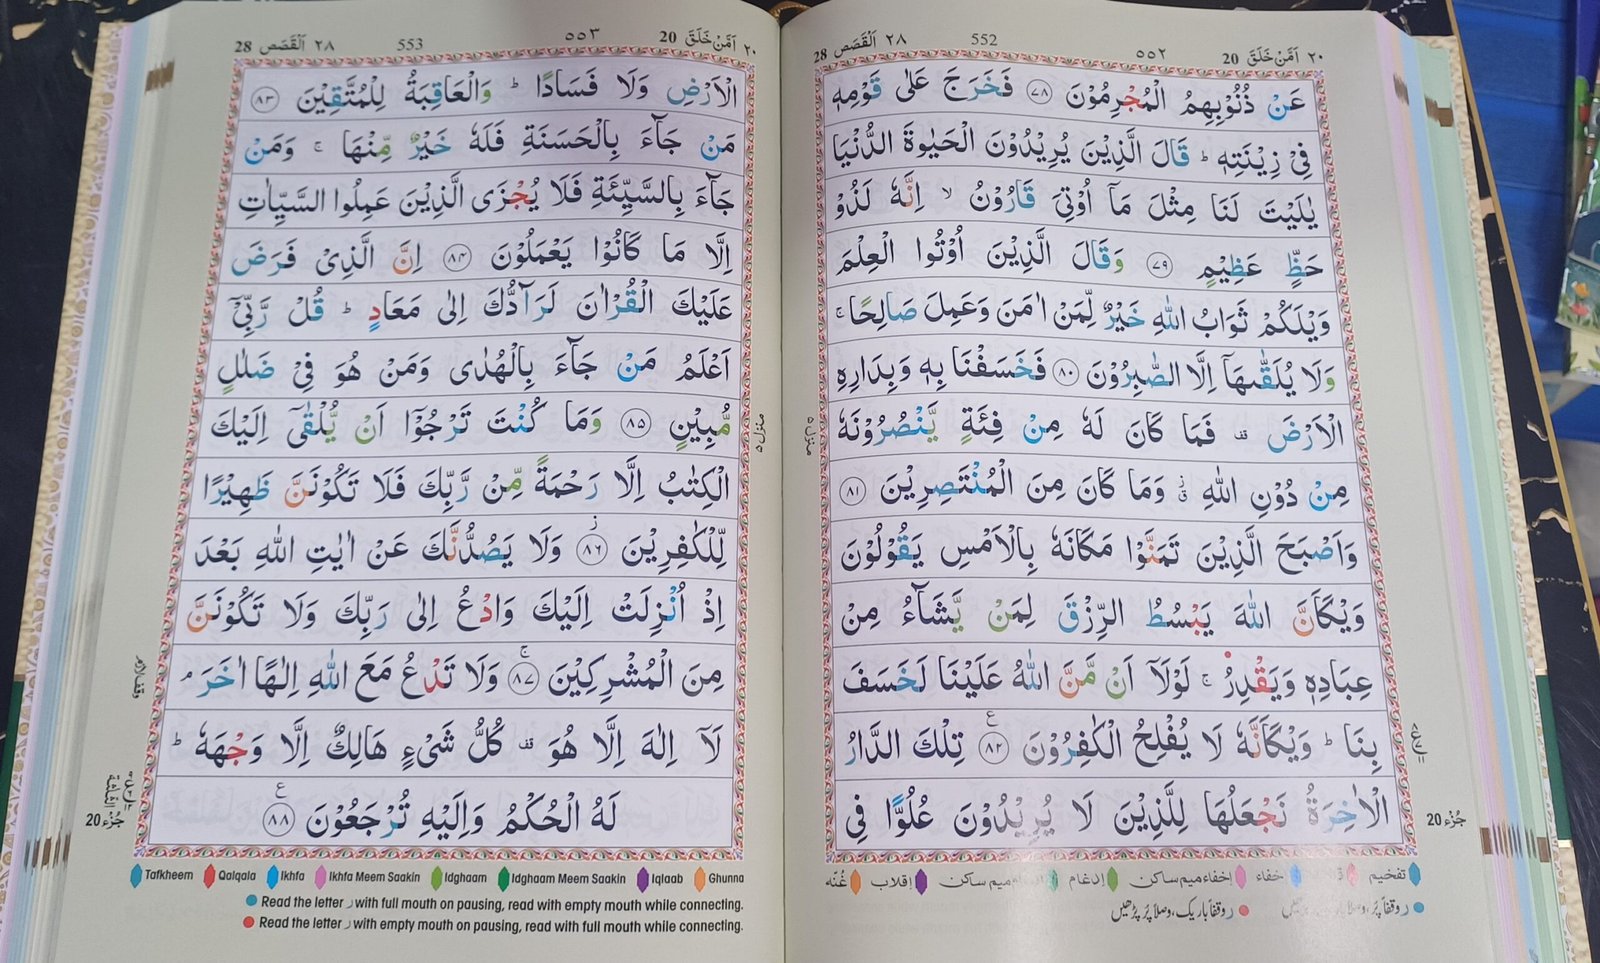 28 اَلْقَصَص ٢٨
552
٥٥٢
20 اَمَّنْ خَلَقَ ٢٠
عَنْ ذُنُوْبِهِمُ الْمُجْرِمُوْنَ ﴿٧٨﴾ فَخَرَجَ عَلٰى قَوْمِهٖ
فِیْ زِیْنَتِهٖ ؕ قَالَ الَّذِیْنَ یُرِیْدُوْنَ الْحَیٰوةَ الدُّنْیَا
یٰلَیْتَ لَنَا مِثْلَ مَاۤ اُوْتِیَ قَارُوْنُ ۙ اِنَّهٗ لَذُوْ
حَظٍّ عَظِیْمٍ ﴿٧٩﴾ وَقَالَ الَّذِیْنَ اُوْتُوا الْعِلْمَ
وَیْلَكُمْ ثَوَابُ اللّٰهِ خَیْرٌ لِّمَنْ اٰمَنَ وَعَمِلَ صَالِحًا ۚ
وَلَا یُلَقّٰىهَاۤ اِلَّا الصّٰبِرُوْنَ ﴿٨٠﴾ فَخَسَفْنَا بِهٖ وَبِدَارِهِ
الْاَرْضَ ۫ فَمَا كَانَ لَهٗ مِنْ فِئَةٍ یَّنْصُرُوْنَهٗ
مِنْ دُوْنِ اللّٰهِ ۗ وَمَا كَانَ مِنَ الْمُنْتَصِرِیْنَ ﴿٨١﴾
وَاَصْبَحَ الَّذِیْنَ تَمَنَّوْا مَكَانَهٗ بِالْاَمْسِ یَقُوْلُوْنَ
وَیْكَاَنَّ اللّٰهَ یَبْسُطُ الرِّزْقَ لِمَنْ یَّشَآءُ مِنْ
عِبَادِهٖ وَیَقْدِرُ ۚ لَوْلَاۤ اَنْ مَّنَّ اللّٰهُ عَلَیْنَا لَخَسَفَ
بِنَا ؕ وَیْكَاَنَّهٗ لَا یُفْلِحُ الْكٰفِرُوْنَ ﴿٨٢﴾ ع تِلْكَ الدَّارُ
الْاٰخِرَةُ نَجْعَلُهَا لِلَّذِیْنَ لَا یُرِیْدُوْنَ عُلُوًّا فِی
منزل ٥
جُزْء 20
تفخیم اخفاء اخفاء میم ساکن ادغام اقلاب غُنّه
ر وقفاً باریک، وصلاً پُر پڑھیں
28 اَلْقَصَص ٢٨
553
٥٥٣
20 اَمَّنْ خَلَقَ ٢٠
الْاَرْضِ وَلَا فَسَادًا ؕ وَالْعَاقِبَةُ لِلْمُتَّقِیْنَ ﴿٨٣﴾
مَنْ جَآءَ بِالْحَسَنَةِ فَلَهٗ خَیْرٌ مِّنْهَا ۚ وَمَنْ
جَآءَ بِالسَّیِّئَةِ فَلَا یُجْزَى الَّذِیْنَ عَمِلُوا السَّیِّاٰتِ
اِلَّا مَا كَانُوْا یَعْمَلُوْنَ ﴿٨٤﴾ اِنَّ الَّذِیْ فَرَضَ
عَلَیْكَ الْقُرْاٰنَ لَرَآدُّكَ اِلٰى مَعَادٍ ؕ قُلْ رَّبِّیْۤ
اَعْلَمُ مَنْ جَآءَ بِالْهُدٰى وَمَنْ هُوَ فِیْ ضَلٰلٍ
مُّبِیْنٍ ﴿٨٥﴾ وَمَا كُنْتَ تَرْجُوْۤا اَنْ یُّلْقٰۤى اِلَیْكَ
الْكِتٰبُ اِلَّا رَحْمَةً مِّنْ رَّبِّكَ فَلَا تَكُوْنَنَّ ظَهِیْرًا
لِّلْكٰفِرِیْنَ ﴿٨٦﴾ وَلَا یَصُدُّنَّكَ عَنْ اٰیٰتِ اللّٰهِ بَعْدَ
اِذْ اُنْزِلَتْ اِلَیْكَ وَادْعُ اِلٰى رَبِّكَ وَلَا تَكُوْنَنَّ
مِنَ الْمُشْرِكِیْنَ ﴿٨٧﴾ وَلَا تَدْعُ مَعَ اللّٰهِ اِلٰهًا اٰخَرَ ۘ
لَاۤ اِلٰهَ اِلَّا هُوَ ۫ كُلُّ شَیْءٍ هَالِكٌ اِلَّا وَجْهَهٗ ؕ
لَهُ الْحُكْمُ وَاِلَیْهِ تُرْجَعُوْنَ ﴿٨٨﴾ ع
منزل ٥
جُزْء 20
Tafkheem Qalqala Ikhfa Ikhfa Meem Saakin Idghaam Idghaam Meem Saakin Iqlaab Ghunna
Read the letter ر with full mouth on pausing, read with empty mouth while connecting.
Read the letter ر with empty mouth on pausing, read with full mouth while connecting.